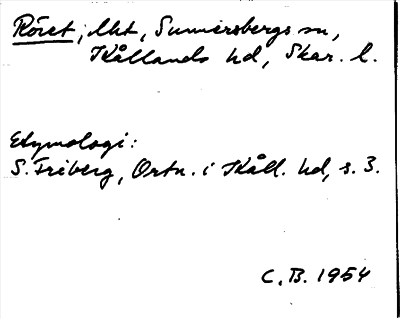 Röret; lht, Sunnersbergs sn,
Kållands hd, Skar. l.
Etymologi:
S. Friberg, Ortn. i Kåll. hd, s. 3.
C.B. 1954